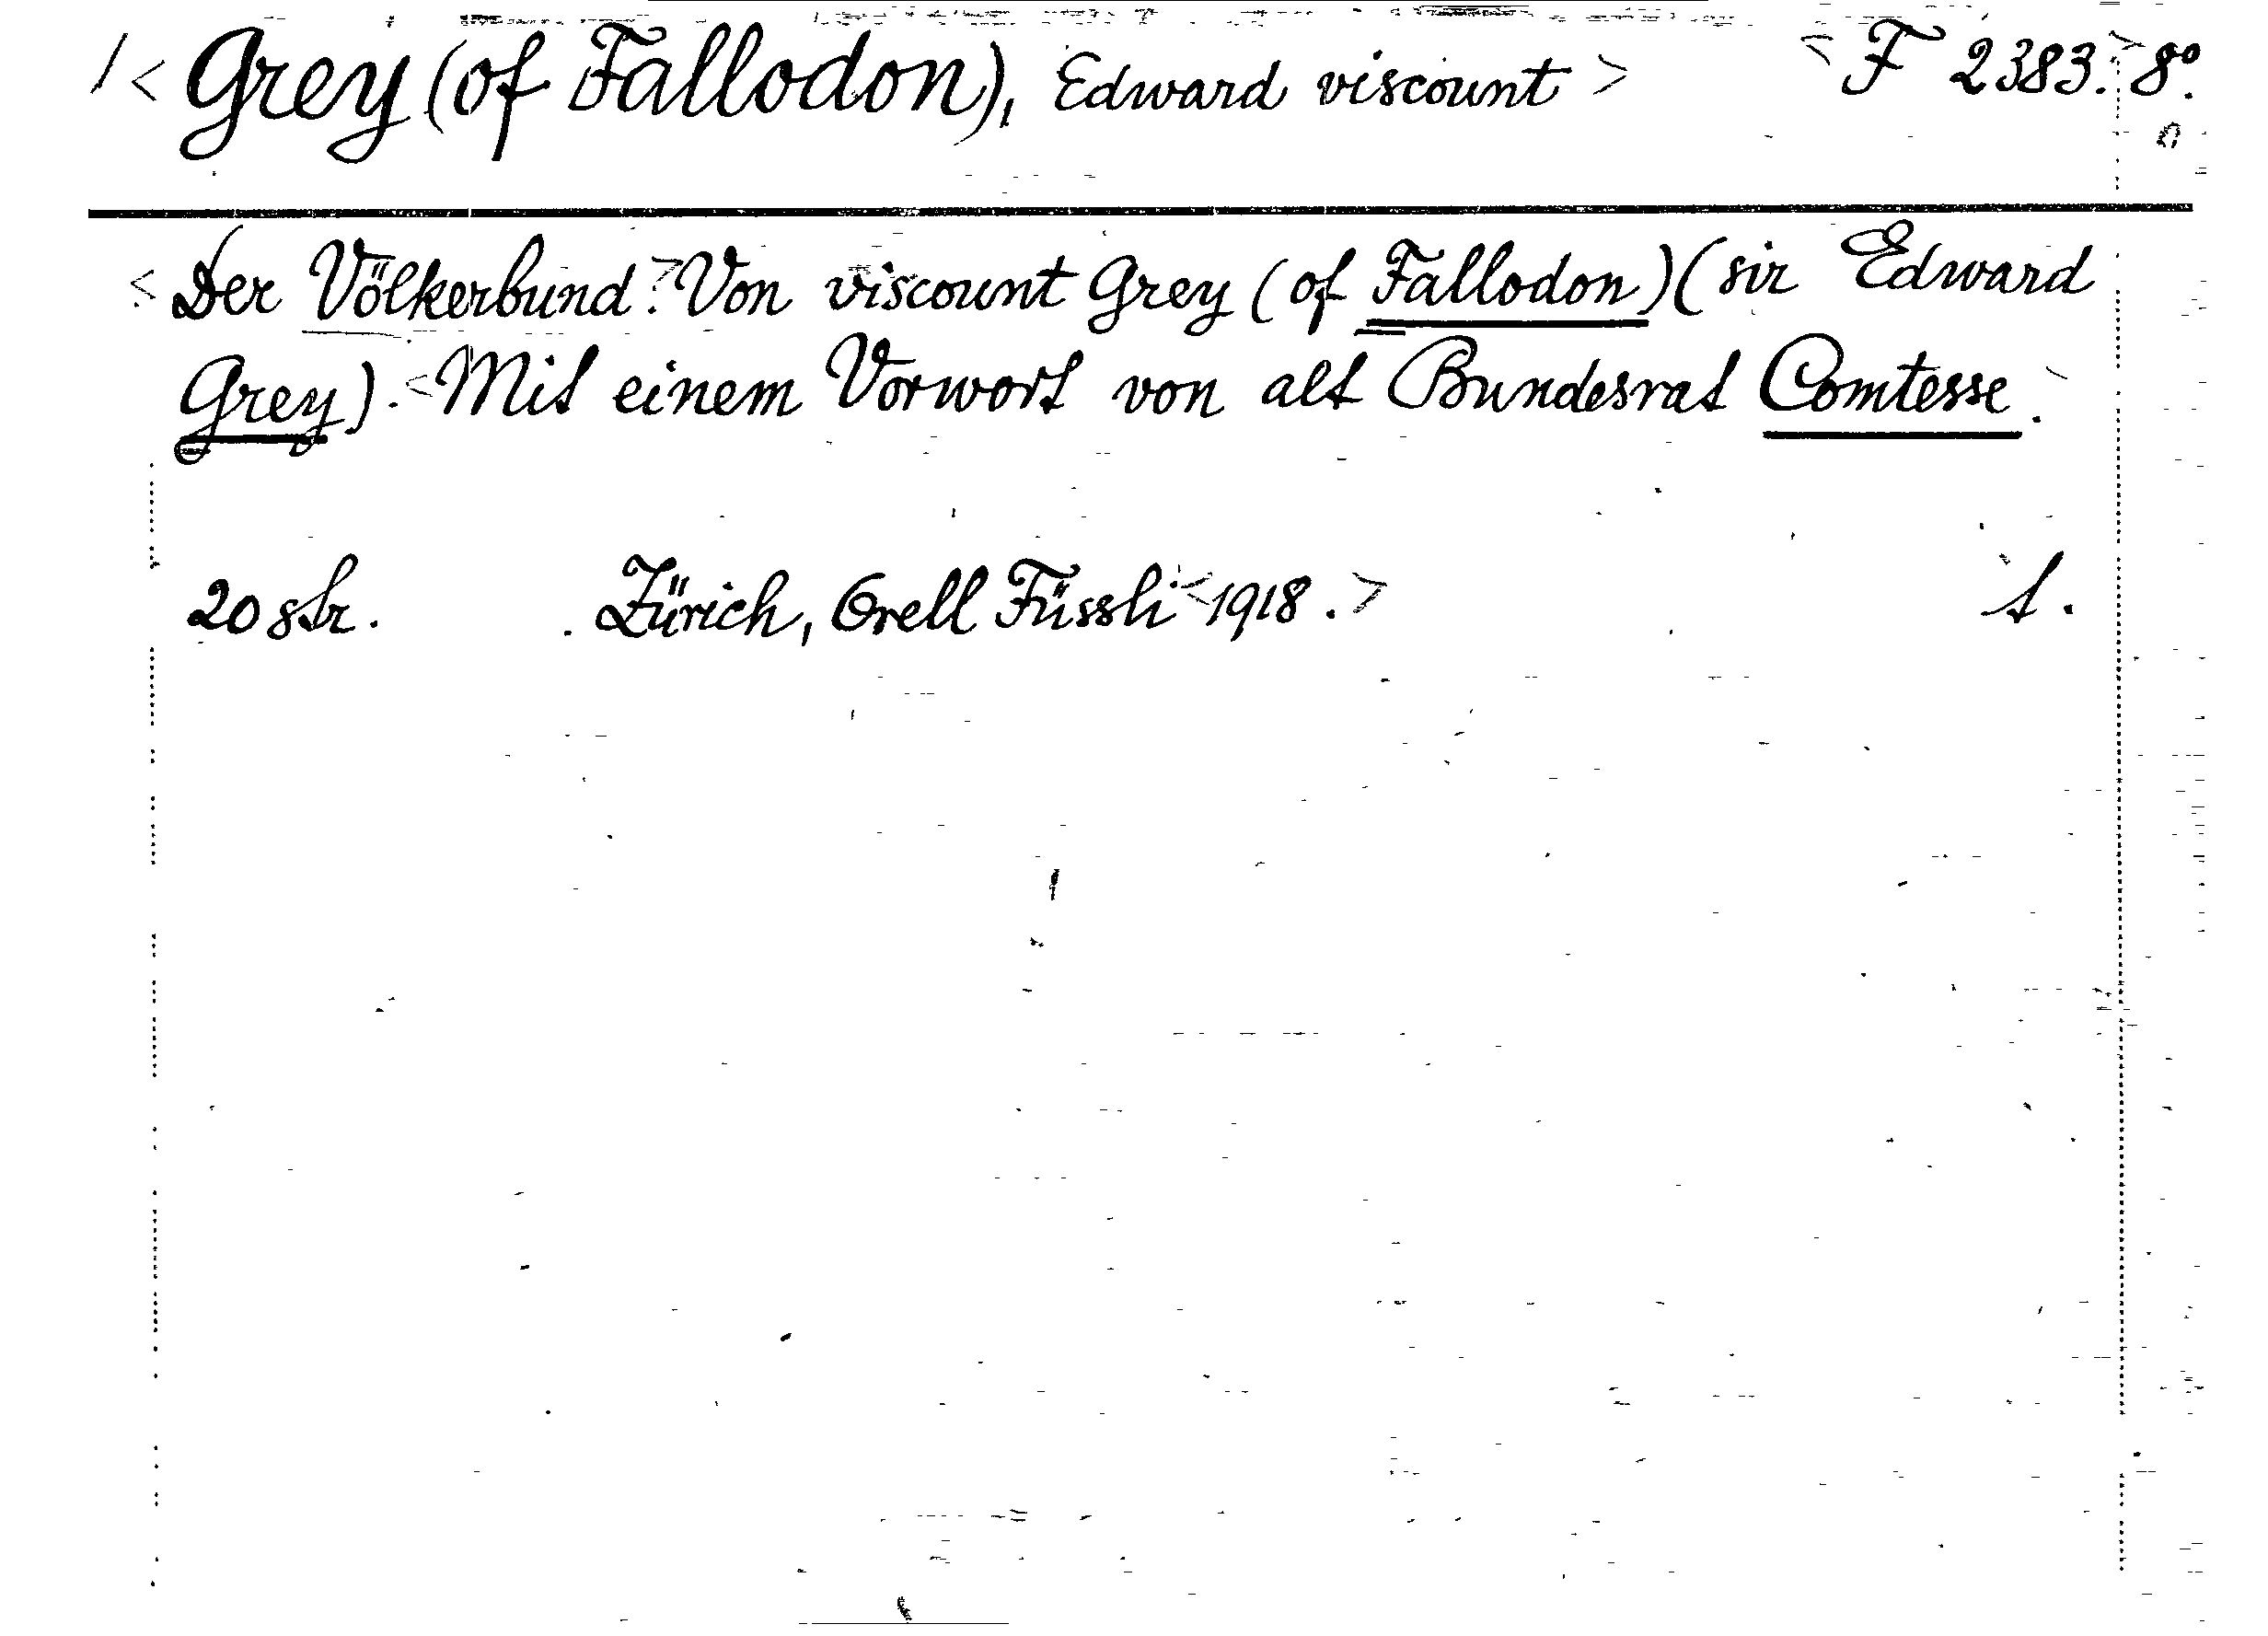 / < Grey (of Fallodon), Edward viscount > < F 2383. > 8º.
< Der Völkerbund. > Von viscount Grey (of Fallodon) (sir Edward
Grey). < Mit einem Vorwort von alt Bundesrat Comtesse. >
20 str. Zürich, Orell Füssli. < 1918. > t.